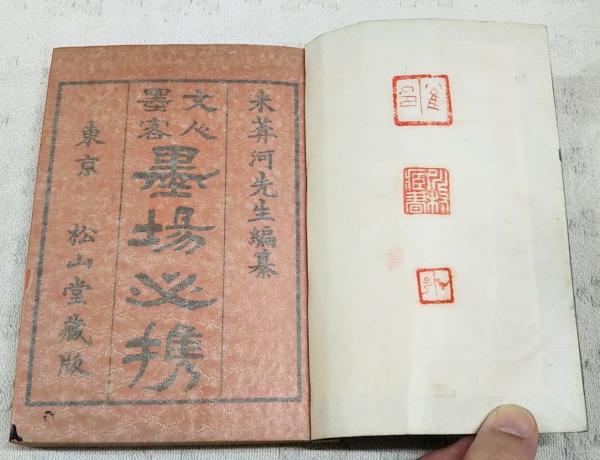 米葊河先生編纂
文人
墨客
墨場必携
東京 松山堂藏版